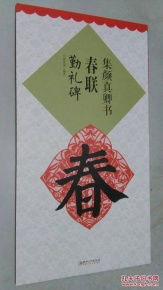 集颜真卿书
春联
勤礼碑
春